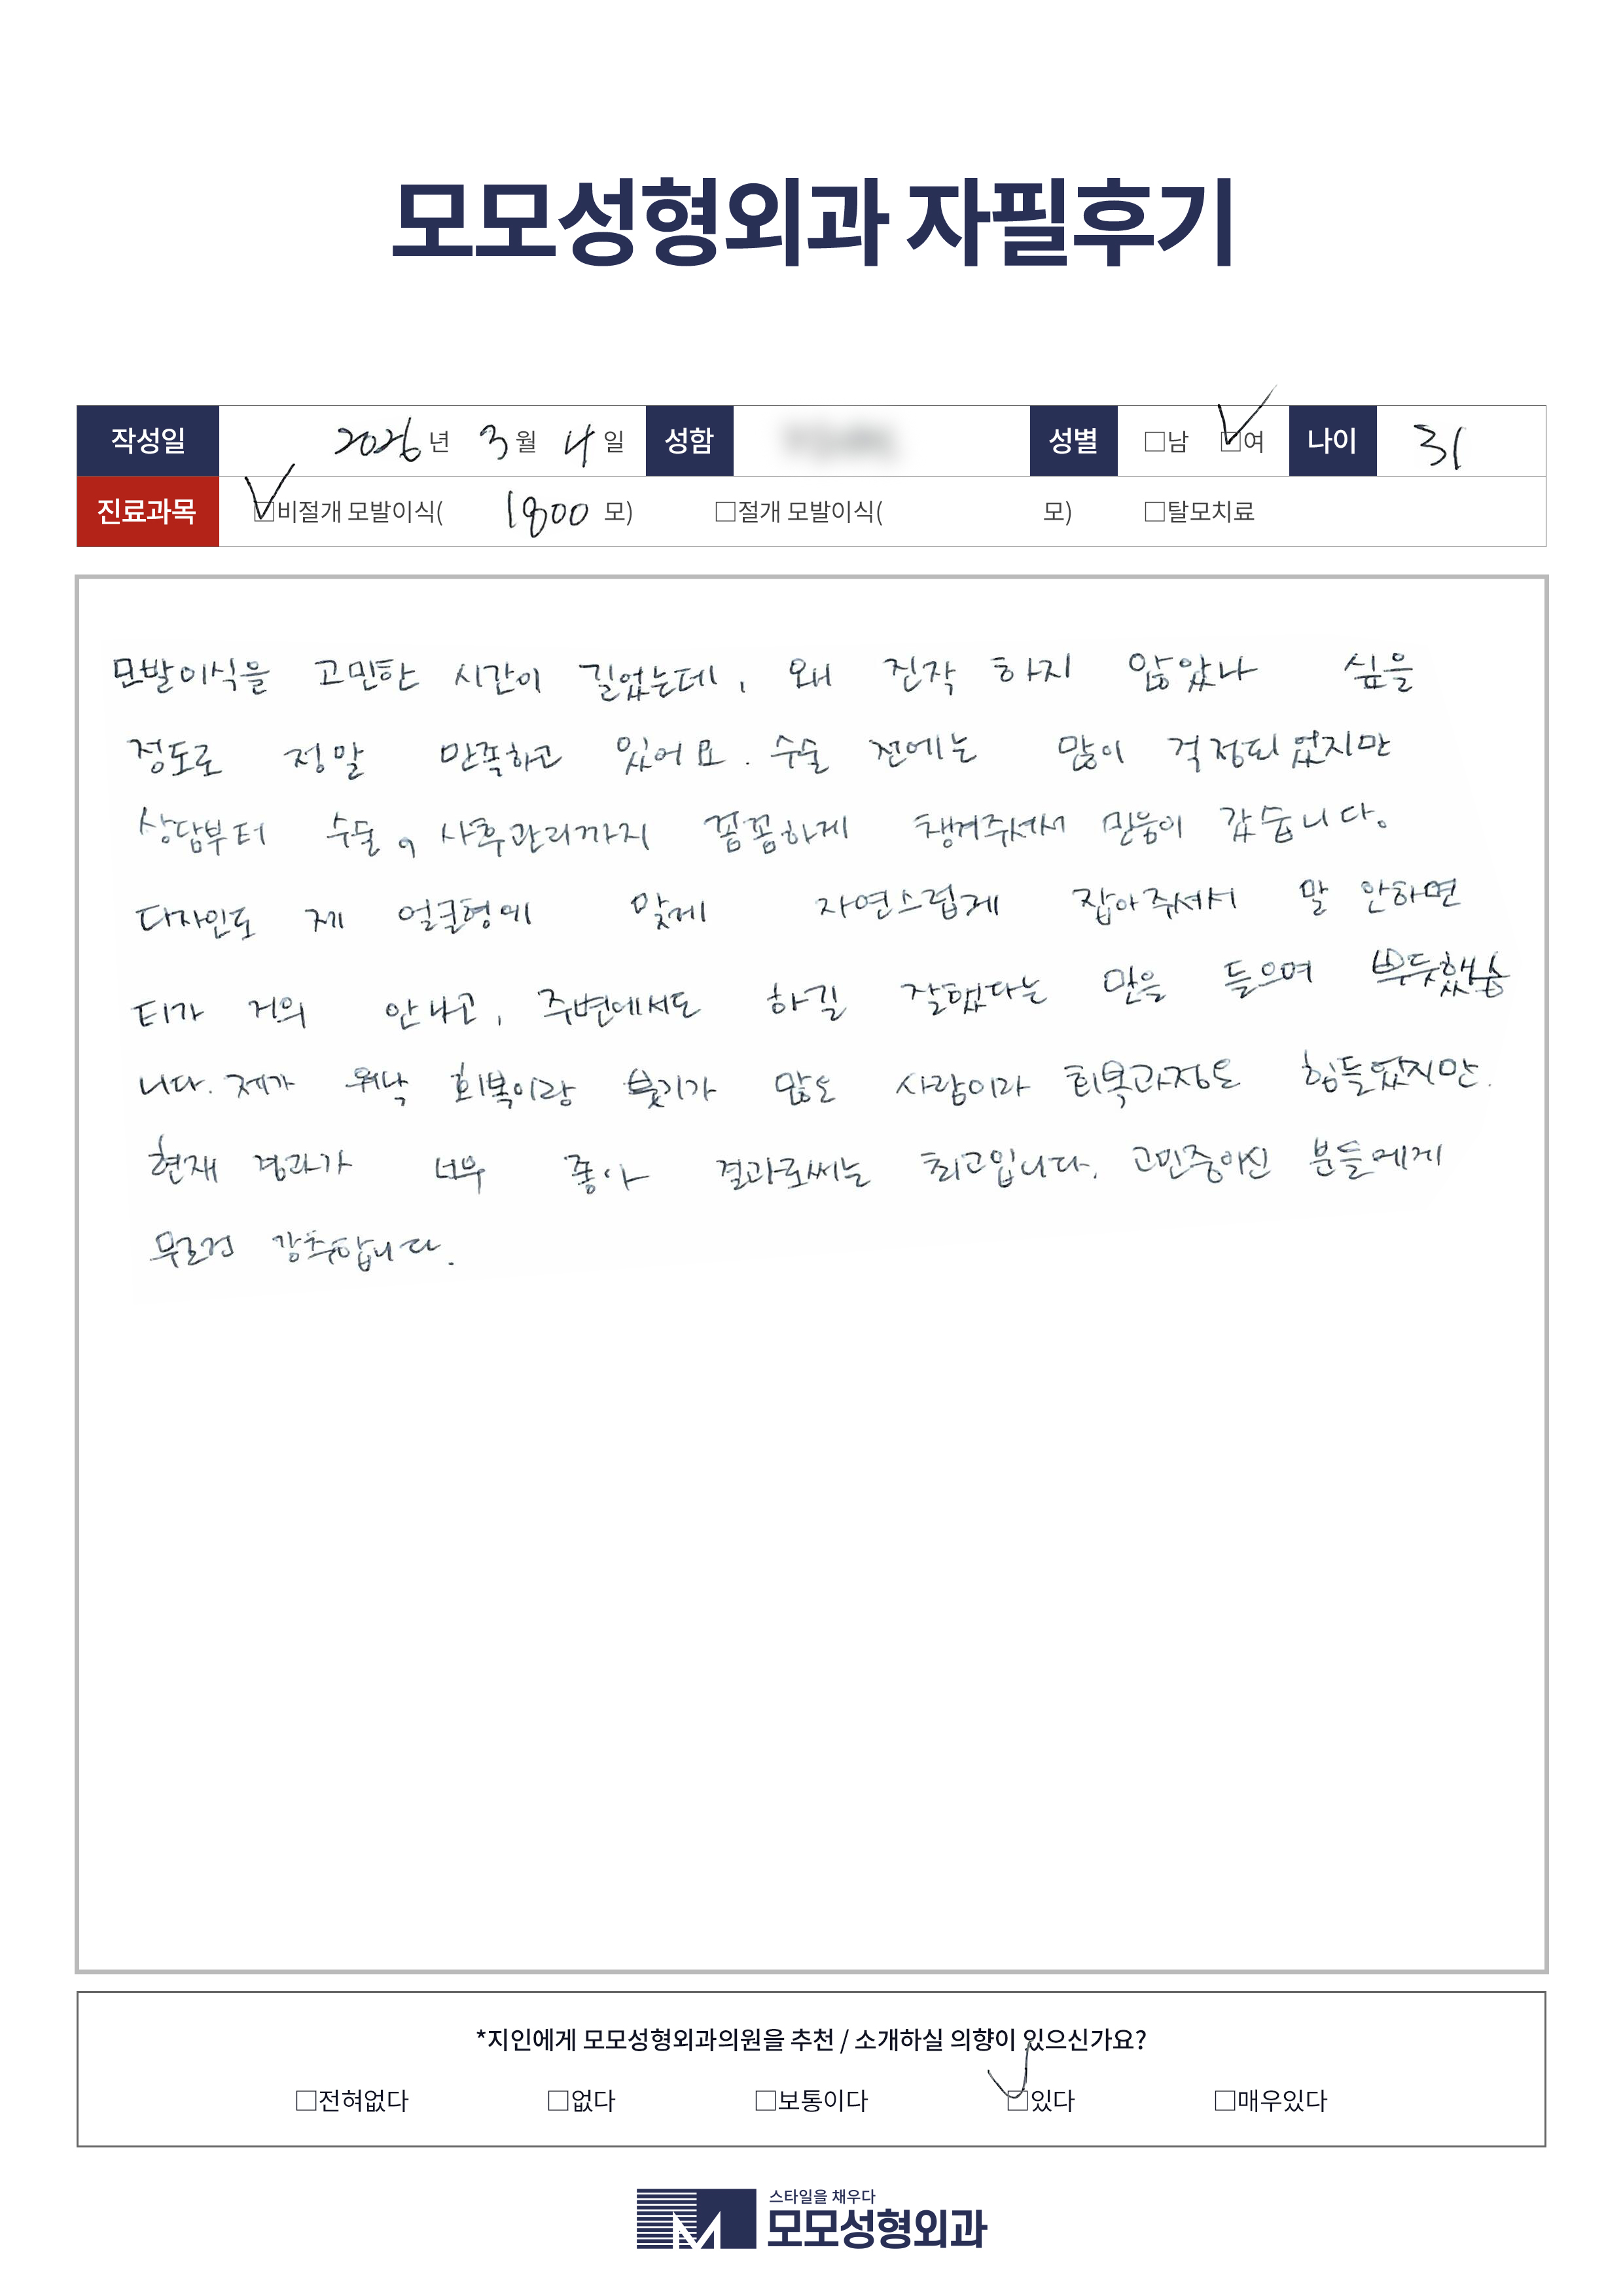 모모성형외과 자필후기
작성일 2026년 3월 4일 성함 성별 □남 □여 나이 31
진료과목 □비절개 모발이식( 1800 모) □절개 모발이식( 모) □탈모치료
모발이식을 고민한 시간이 길었는데, 왜 진작 하지 않았나 싶을
정도로 정말 만족하고 있어요. 수술 전에는 많이 걱정되었지만
상담부터 수술, 사후관리까지 꼼꼼하게 챙겨주셔서 믿음이 갔습니다.
디자인도 제 얼굴형에 맞게 자연스럽게 잡아주셔서 말 안하면
티가 거의 안나고, 주변에서도 하길 잘했다는 말을 들으며 뿌듯했습
니다. 제가 워낙 회복이랑 붓기가 많은 사람이라 회복과정은 힘들었지만.
현재 경과가 너무 좋아 결과로써는 최고입니다. 고민중이신 분들에게
무조건 강추합니다.
*지인에게 모모성형외과의원을 추천 / 소개하실 의향이 있으신가요?
□전혀없다 □없다 □보통이다 □있다 □매우있다
스타일을 채우다
모모성형외과